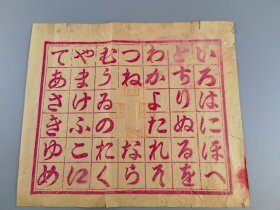 いろはにほへ
とちりぬるを
わかよたれそ
つねなら
むうゐのおく
やまけふこ江
てあさきゆめ